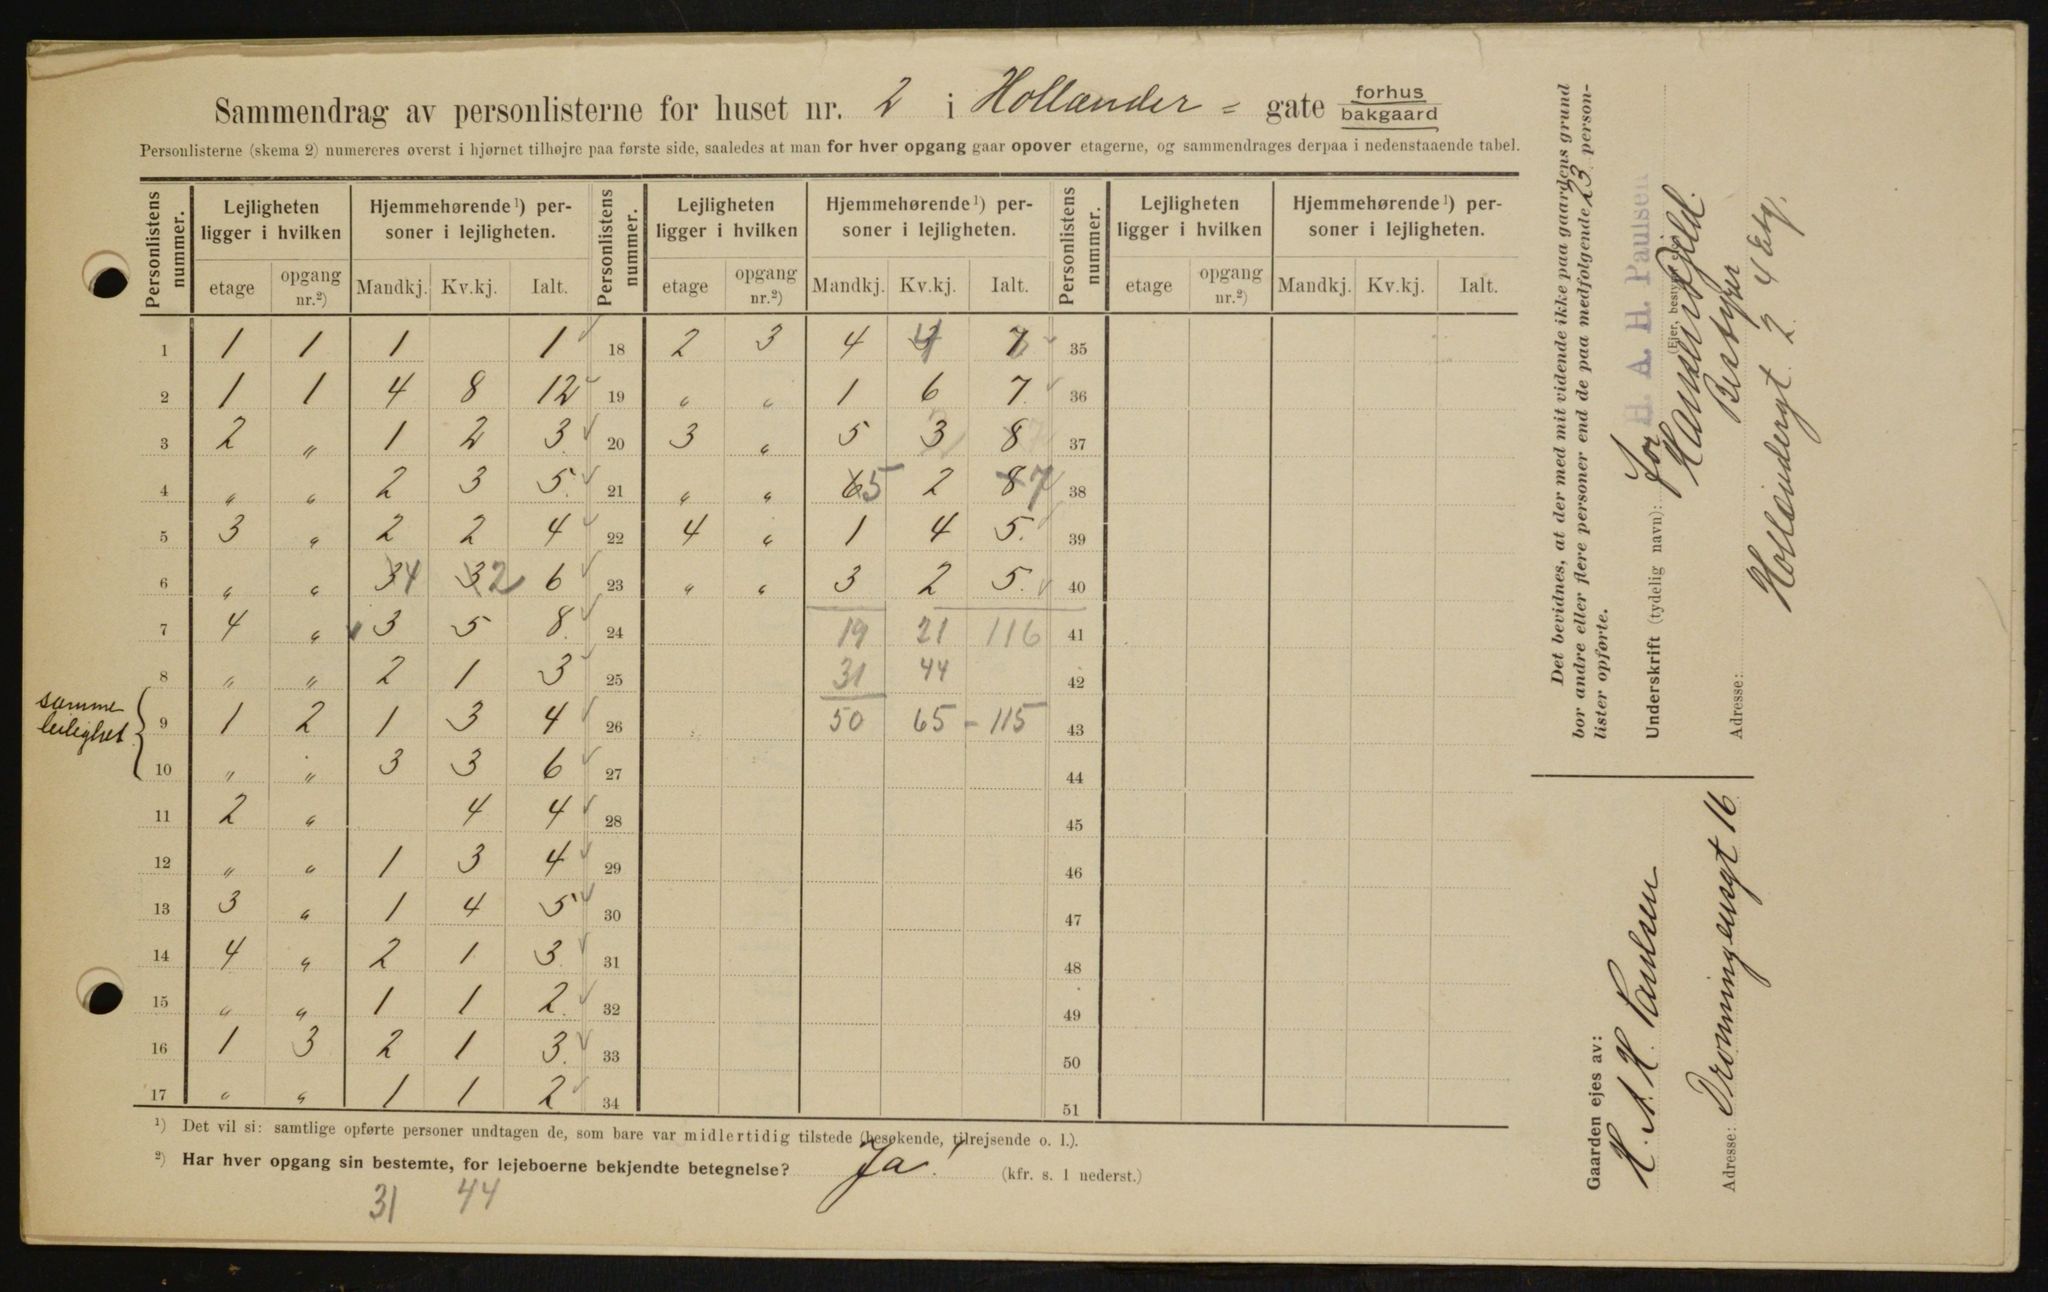 Sammendrag av personlisterne for huset nr. 2 i Hollænder = gate forhus bakgaard
Personlisterne (skema 2) numereres øverst i hjørnet tilhøjre paa første side, saaledes at man for hver opgang gaar opover etagerne, og sammendrages derpaa i nedenstaaende tabel.
Personlistens nummer. Lejligheten ligger i hvilken Hjemmehørende ¹) personer i lejligheten. Personlistens nummer. Lejligheten ligger i hvilken Hjemmehørende ¹) personer i lejligheten. Personlistens nummer. Lejligheten ligger i hvilken Hjemmehørende ¹) personer i lejligheten.
etage opgang nr.²) Mandkj. Kv.kj. Ialt. etage opgang nr.²) Mandkj. Kv.kj. Ialt. etage opgang nr.²) Mandkj. Kv.kj. Ialt.
1 1 1 1 1 18 2 3 4 3 7 35
2 1 1 4 8 12 19 " " 1 6 7 36
3 2 " 1 2 3 20 3 " 5 3 8 37
4 " " 2 3 5 21 " " 6 5 2 8 7 38
5 3 " 2 2 4 22 4 " 1 4 5 39
6 " " 3 4 3 2 6 23 " " 3 2 5 40
7 4 " 3 5 8 24 19 21 116 41
8 " " 2 1 3 25 31 44 42
samme leilighet
9 1 2 1 3 4 26 50 65 - 115 43
10 " " 3 3 6 27 44
11 2 " 4 4 28 45
12 " " 1 3 4 29 46
13 3 " 1 4 5 30 47
14 4 " 2 1 3 31 48
15 " " 1 1 2 32 49
16 1 3 2 1 3 33 50
17 " " 1 1 2 34 51
¹) Det vil si: samtlige opførte personer undtagen de, som bare var midlertidig tilstede (besøkende, tilrejsende o. l.).
²) Har hver opgang sin bestemte, for lejeboerne bekjendte betegnelse? Ja! (kfr. s. 1 nederst.)
31 44
Det bevidnes, at der med mit vidende ikke paa gaardens grund
bor andre eller flere personer end de paa medfølgende 23 person-
lister opførte.
for H. A. H. Paulsen
Underskrift (tydelig navn): Hansen
(Ejer, bestyrer
Bestyrer
Adresse: Hollændergt 2 4 Etg.
Gaarden ejes av:
H. A. H. Paulsen
Adresse: Dronningensgt 16